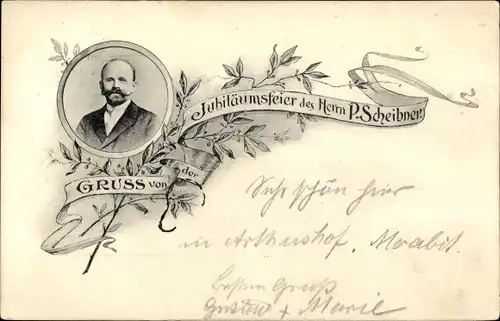 GRUSS von der
Jubiläumsfeier des Herrn P. Scheibner!
Sehr schön hier
in Arthushof, Moabit.
besten Gruß
Gustav + Marie